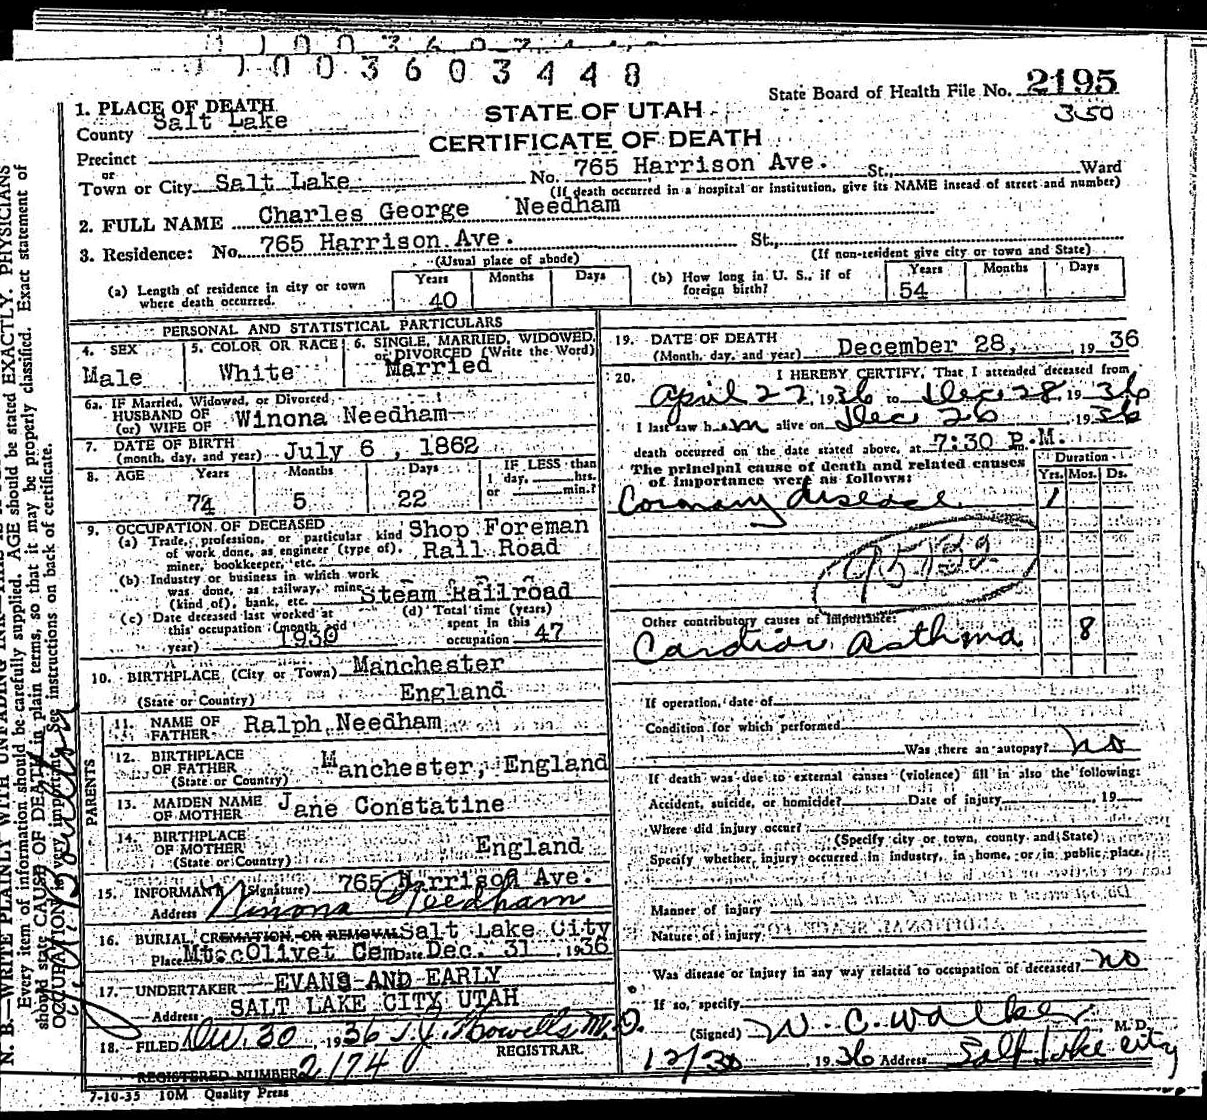 1003603448
State Board of Health File No. 2195
350
1. PLACE OF DEATH
STATE OF UTAH
County Salt Lake
CERTIFICATE OF DEATH
Precinct
or
Town or City Salt Lake No. 765 Harrison Ave. St., Ward
(If death occurred in a hospital or institution, give its NAME insead of street and number)
2. FULL NAME Charles George Needham
3. Residence: No. 765 Harrison Ave. St.,
(Usual place of abode) (If non-resident give city or town and State)
(a) Length of residence in city or town where death occurred. Years 40 Months Days
(b) How long in U. S., if of foreign birth? Years 54 Months Days
PERSONAL AND STATISTICAL PARTICULARS
4. SEX Male
5. COLOR OR RACE White
6. SINGLE, MARRIED, WIDOWED, or DIVORCED (Write the Word) Married
6a. IF Married, Widowed, or Divorced
HUSBAND OF
(or) WIFE OF Winona Needham
7. DATE OF BIRTH
(month, day, and year) July 6, 1862
8. AGE Years 74 Months 5 Days 22
IF LESS than 1 day, hrs. or min.?
9. OCCUPATION OF DECEASED
(a) Trade, profession, or particular kind of work done, as engineer (type of), miner, bookkeeper, etc. Shop Foreman Rail Road
(b) Industry or business in which work was done, as railway, mine (kind of), bank, etc. Steam Railroad
(c) Date deceased last worked at this occupation (month and year) 1930
(d) Total time (years) spent in this occupation 47
10. BIRTHPLACE (City or Town) Manchester
(State or Country) England
PARENTS
11. NAME OF FATHER Ralph Needham
12. BIRTHPLACE OF FATHER (State or Country) Manchester, England
13. MAIDEN NAME OF MOTHER Jane Constatine
14. BIRTHPLACE OF MOTHER (State or Country) England
15. INFORMANT (Signature) 765 Harrison Ave.
Address Winona Needham
16. BURIAL, CREMATION, OR REMOVAL Salt Lake City
Place Mt. Olivet Cem Date Dec. 31, 1936
17. UNDERTAKER EVANS AND EARLY
Address SALT LAKE CITY, UTAH
18. FILED Dec. 30, 1936 T. J. Howells, M. D.
REGISTRAR.
REGISTERED NUMBER 2174
7-10-35 10M Quality Press
19. DATE OF DEATH
(Month, day, and year) December 28, 1936
20. I HEREBY CERTIFY, That I attended deceased from
April 27, 1936 to Dec 28 1936
I last saw him alive on Dec 26 1936
death occurred on the date stated above, at 7:30 P.M.
The principal cause of death and related causes of importance were as follows:
Duration
Yrs. Mos. Ds.
Coronary disease 1
Other contributory causes of importance:
Cardiac Asthma 8
If operation, date of
Condition for which performed
Was there an autopsy? no
If death was due to external causes (violence) fill in also the following:
Accident, suicide, or homicide? Date of injury 19
Where did injury occur?
(Specify city or town, county and State)
Specify whether injury occurred in industry, in home, or in public place.
Manner of injury
Nature of injury
Was disease or injury in any way related to occupation of deceased? no
If so, specify
(Signed) W. C. Walker M. D.
12/30 1936 Address Salt Lake City
N. B.—WRITE PLAINLY WITH UNFADING INK
Every item of information should be carefully supplied. AGE should be stated EXACTLY. PHYSICIANS
should state CAUSE OF DEATH in plain terms, so that it may be properly classified. Exact statement of
OCCUPATION is very important. See instructions on back of certificate.